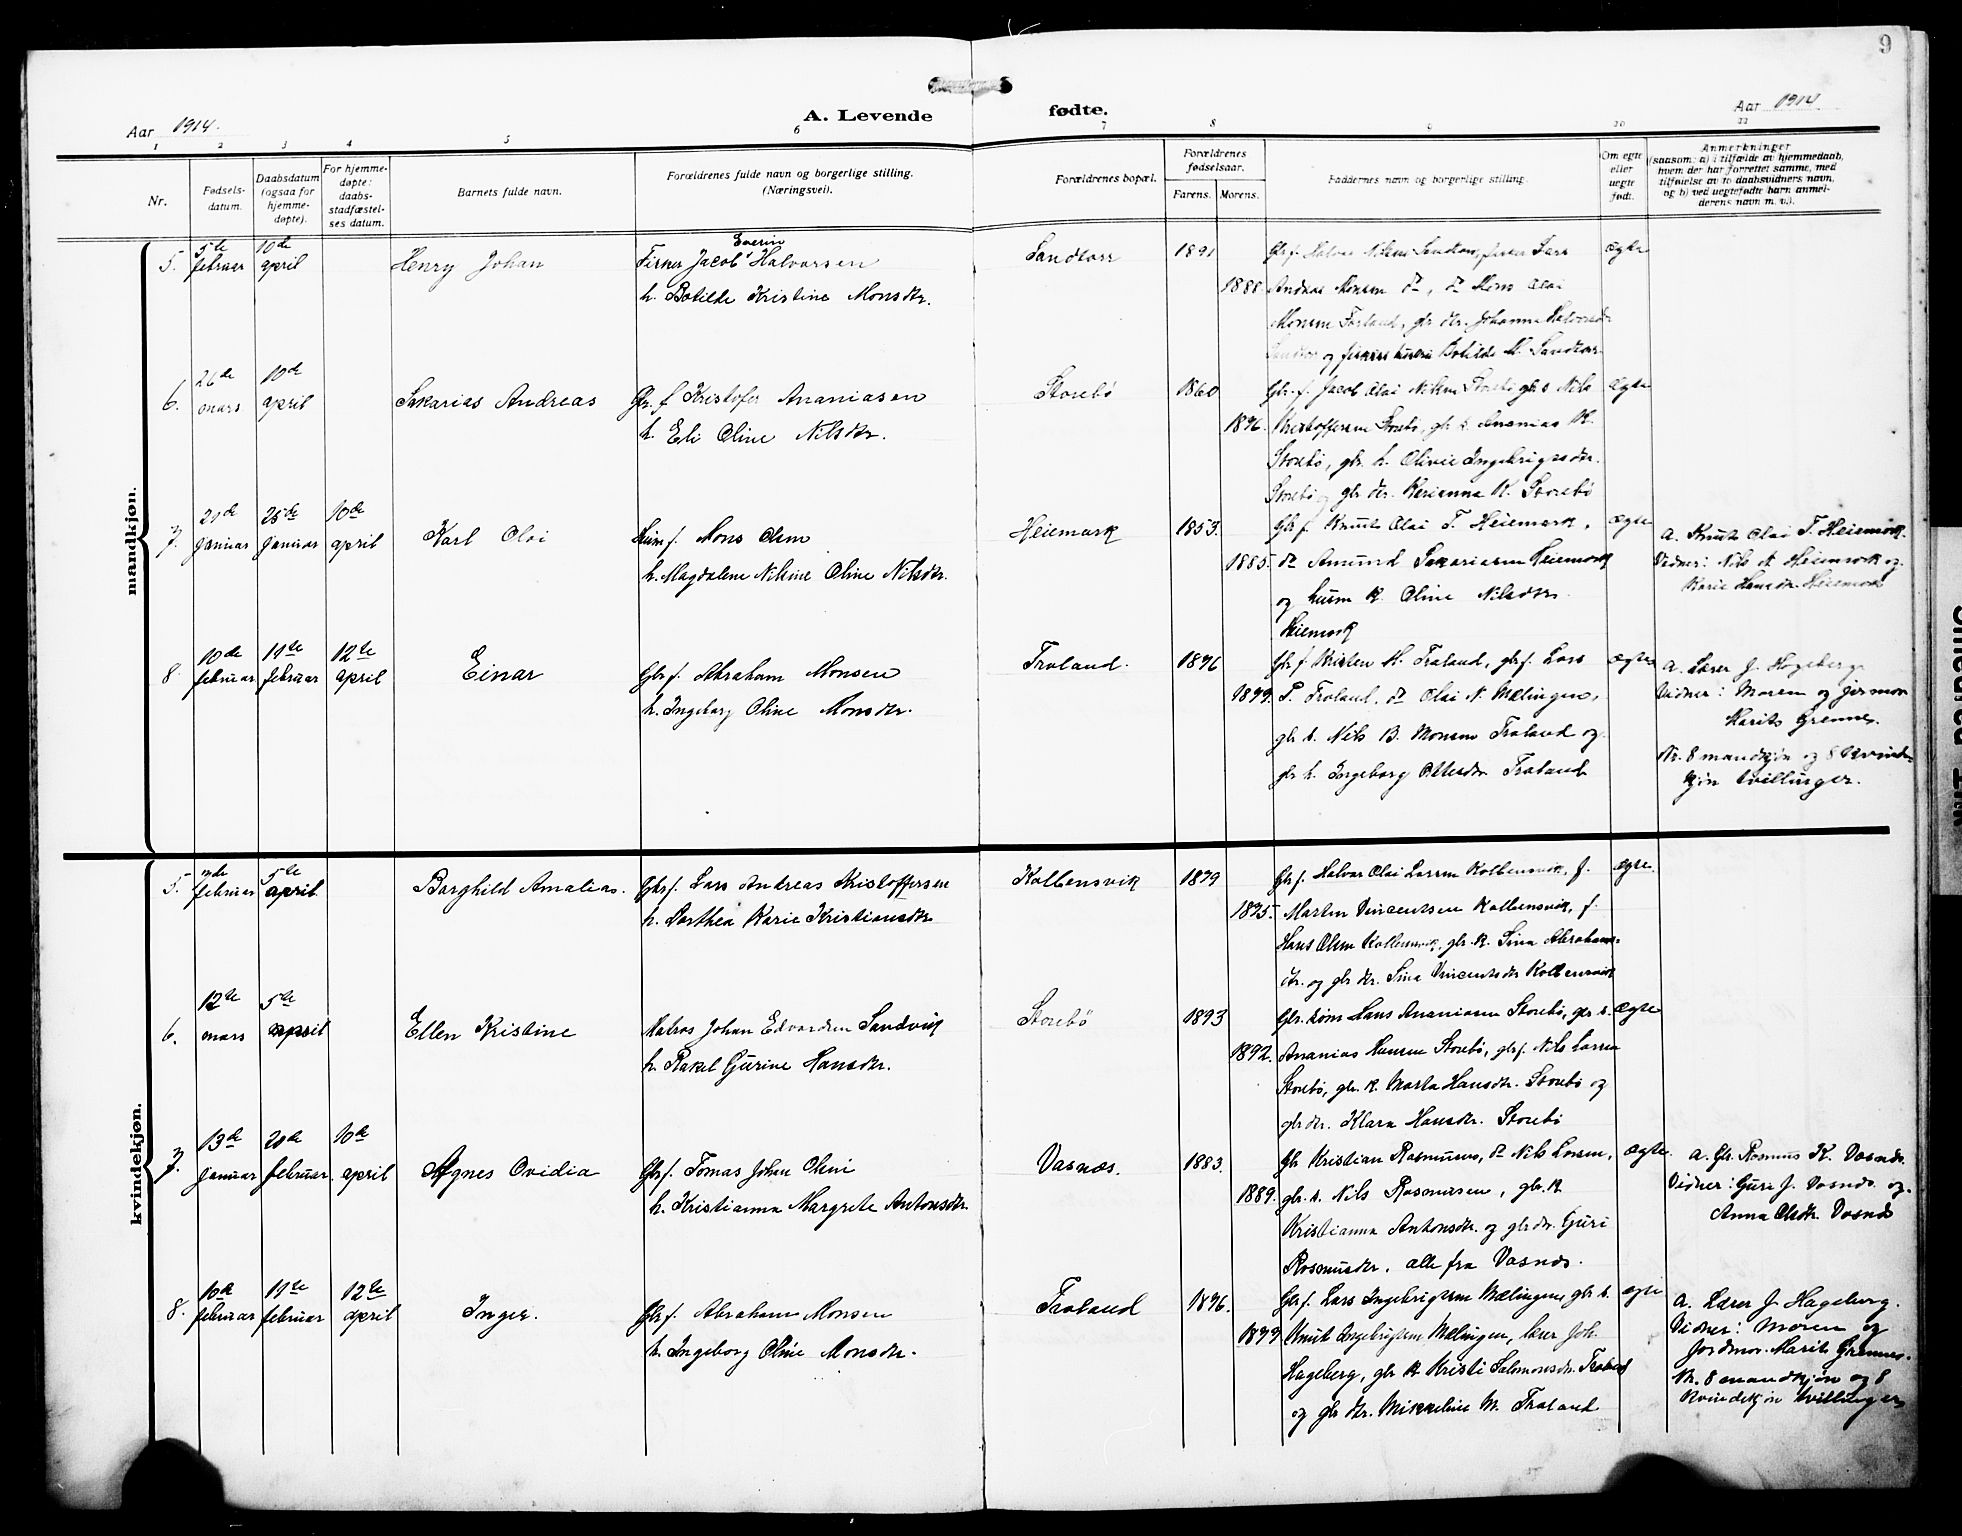 9
Aar 1914.
A. Levende fødte.
Aar 1914
1 2 3 4 5 6 7 8 9 10 11
Nr.
Fødsels-
datum.
Daabsdatum
(ogsaa for
hjemme-
døpte).
For hjemme-
døpte:
daabs-
stadfæstel-
ses datum.
Barnets fulde navn.
Forældrenes fulde navn og borgerlige stilling.
(Næringsvei).
Forældrenes bopæl.
Forældrenes
fødselsaar.
Farens. Morens.
Faddernes navn og borgerlige stilling.
Om egte
eller
uegte
født.
Anmerkninger
(saasom: a) i tilfælde av hjemmedaab,
hvem der har forrettet samme, med
tilføielse av to daabsvidners navn,
og b) ved uegtefødte barn anmel-
derens navn m. v.).
mandkjøn.
5. 5te februar 10de april
Henry Johan
Fisker Jacob Severin Halvorsen
h. Botilde Kristine Monsdtr.
Sandtorr
1891
1888.
Gbr.f. Halvor Nilsen Sandtorr, fisker Lars
Andreas Monsen do, do Mons Olai
Monsen Forland, gbr dtr. Johanna Halvorsdtr
og fiskers Botilde M. Sandtorr.
ægte
6. 26de mars 10de april
Sakarias Andreas
Gbr. f Kristofer Ananiasen
h. Eli Oline Nilsdtr.
Storebø
1860
1876.
Gbr. f. Jacob Olai Nilsen Storebø gbr s Nils
Kristoffersen Storebø, gbr s. Ananias K.
Storebø, gbr. h. Olivie Ingebrigtsdtr.
Storebø og gbr dtr. Kerianna K. Storebø
ægte
7. 21de januar 25de januar 10de april
Karl Olai
Husm f. Mons Olsen
h. Magdalene Nilsine Oline Nilsdtr.
Heiemark
1853.
1885.
Gbr f. Knut Olai T. Heiemark,
do Amund Sakariasen Heiemark
og husm k. Oline Nilsdtr.
Heiemark
ægte
a. Knut Olai T. Heiemark.
Vidner: Nils A Heiemark og
Karie Hansdtr Heiemark
8 10de februar 11te februar 12te april
Einar
Gbr f. Abraham Monsen
h. Ingeborg Oline Monsdtr.
Troland.
1876
1879.
Gbr f Kristen M. Troland, gbr f. Lars
P. Troland. do Olai N. Mælingen,
gbr s. Nils B. Monsen Troland og
gbr h. Ingeborg Olsdtr Troland
ægte
a. Lærer J. Hageberg
Vidner: Moren og jormor
Marit Grenne.
Nr. 8 mandkjøn og 8 kvinde-
kjøn tvillinger.
kvindekjøn.
5. februar 5te april
Borghild Amalias.
Gbr f. Lars Andreas Kristoffersen
h. Dorthea Karie Kristiansdtr
Kolbensvik
1879
1875.
Gbr f. Halvor Olai Larsen Kolbensvik, f.
Martin Vincentsen Kolbensvik, f.
Hans Olsen Kolbensvik, gbr. k. Sina Abrahams-
dtr. og gbr dtr. Sina Vincentsdtr Kolbensvik
ægte.
6. 12te mars 5te april
Ellen Kristine
Matros Johan Edvardsen Sandvik
h. Rakel Gurine Hansdtr.
Storebø
1893
1892.
Gbr. Hans Ananiasen Storebø, gbr s.
Ananias Hansen Storebø, gbr f. Nils Larsen
Storebø, gbr. k. Marta Hansdtr. Storebø og
gbr dtr. Klara Hansdtr. Storebø
ægte
7. 13de januar 20de februar 10de april
Agnes Ovidia
Gbr f. Tomas Johan Olsen
h. Kristianna Margrete Antonsdtr.
Vasnæs.
1883.
1889.
Gbr Kristian Rasmussen, do Nils Larsen,
gbr. s. Nils Rasmussen, gbr. k
Kristianna Antonsdtr. og gbr dtr. Guri
Rasmusdtr. alle fra Vasnæs.
ægte.
a. Gbr. Rasmus K. Vasnæs.
Vidner: Guri J. Vasnæs og.
Anna Olsdtr. Vasnæs
8. 10de februar 11te februar 12te april
Inger.
Gbr f. Abraham Monsen
h. Ingeborg Oline Monsdtr.
Troland
1876.
1879
Gbr f. Lars Ingebrigtsen Mælingen, gbr s.
Knut Ingebrigtsen Mælingen, lærer Joh.
Hageberg, gbr k Kristi Salomonsdtr. Troland
og gbr dtr. Mikkeline M. Troland
ægte
a. Lærer J Hageberg.
Vidner: Moren og
Jordmor. Marit Grenne.
Nr. 8 mandkjøn og 8
kvindekjøn tvillinger